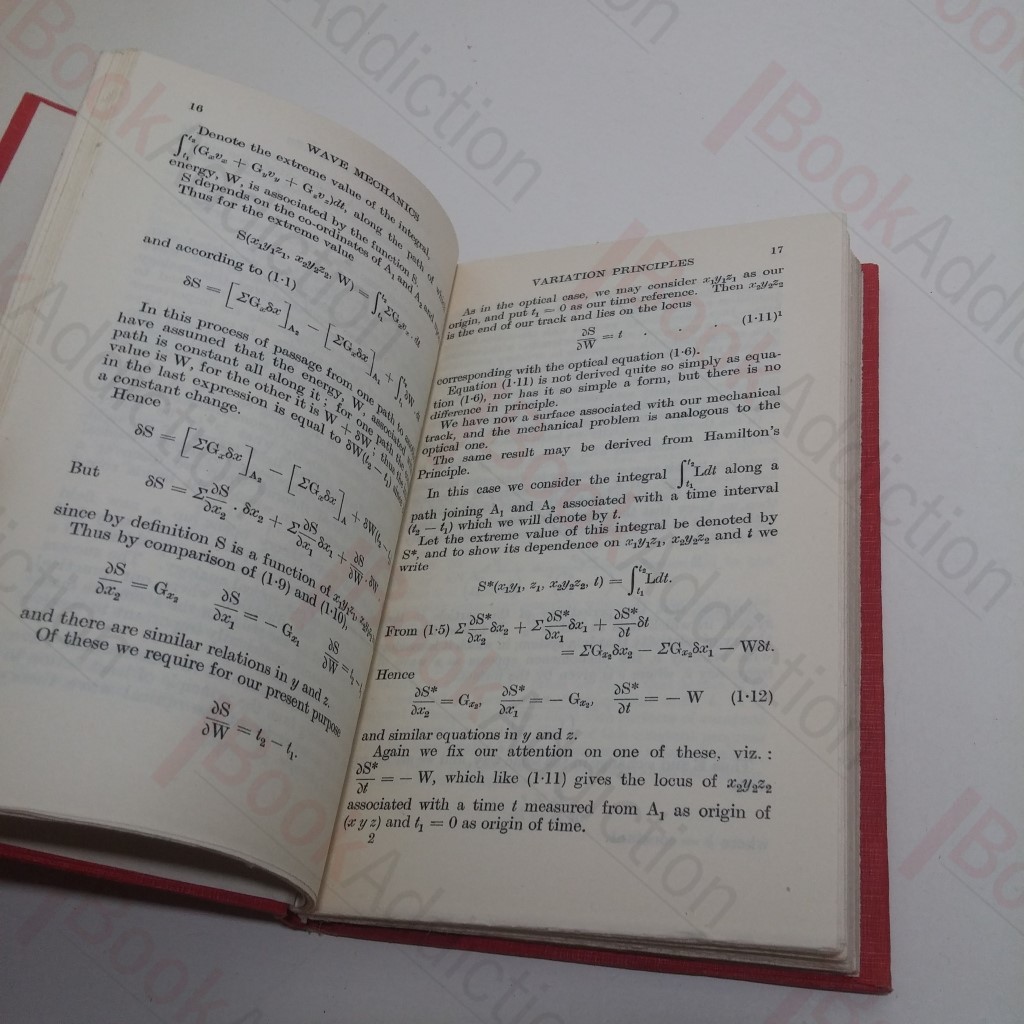 16
WAVE MECHANICS
Denote the extreme value of the integral
∫ₜ₁ᵗ² (Gₓvₓ + G_yv_y + G_zv_z)dt, along the path of
energy, W, is associated by the function S.
S depends on the co-ordinates of A₁ and A₂ and
Thus for the extreme value
S(x₁y₁z₁, x₂y₂z₂, W) = ∫ₜ₁ᵗ² ΣGₓvₓ . dt
and according to (1·1)
δS = [ΣGₓδx]A₂ − [ΣGₓδx]A₁ + ∫ₜ₁ᵗ² δW .
In this process of passage from one path to
have assumed that the energy, W, associated
path is constant all along it; for one path the
value is W, for the other it is W + δW; thus the
in the last expression is equal to δW(t₂ − t₁) since
a constant change.
Hence
δS = [ΣGₓδx]A₂ − [ΣGₓδx]A + δW(t₂ − t₁
But δS = Σ ∂S/∂x₂ . δx₂ + Σ ∂S/∂x₁ δx₁ + ∂S/∂W . δW
since by definition S is a function of x₁y₁z₁, x₂y₂z₂,
Thus by comparison of (1·9) and (1·10),
∂S/∂x₂ = Gₓ₂ ∂S/∂x₁ = − Gₓ₁ ∂S/∂W = t₂ −
and there are similar relations in y and z.
Of these we require for our present purpose
∂S/∂W = t₂ − t₁.
VARIATION PRINCIPLES 17
As in the optical case, we may consider x₁y₁z₁ as our
origin, and put t₁ = 0 as our time reference. Then x₂y₂z₂
is the end of our track and lies on the locus
∂S/∂W = t . . . . (1·11)¹
corresponding with the optical equation (1·6).
Equation (1·11) is not derived quite so simply as equa-
tion (1·6), nor has it so simple a form, but there is no
difference in principle.
We have now a surface associated with our mechanical
track, and the mechanical problem is analogous to the
optical one.
The same result may be derived from Hamilton's
Principle.
In this case we consider the integral ∫ₜ₁ᵗ² Ldt along a
path joining A₁ and A₂ associated with a time interval
(t₂ − t₁) which we will denote by t.
Let the extreme value of this integral be denoted by
S*, and to show its dependence on x₁y₁z₁, x₂y₂z₂ and t we
write
S*(x₁y₁, z₁, x₂y₂z₂, t) = ∫ₜ₁ᵗ² Ldt.
From (1·5) Σ ∂S*/∂x₂ δx₂ + Σ ∂S*/∂x₁ δx₁ + ∂S*/∂t δt
= ΣGₓ₂δx₂ − ΣGₓ₂δx₁ − Wδt.
Hence
∂S*/∂x₂ = Gₓ₂, ∂S*/∂x₁ = − Gₓ₂, ∂S*/∂t = − W (1·12)
and similar equations in y and z.
Again we fix our attention on one of these, viz. :
∂S*/∂t = − W, which like (1·11) gives the locus of x₂y₂z₂
associated with a time t measured from A₁ as origin of
(x y z) and t₁ = 0 as origin of time.
2
BookAddiction